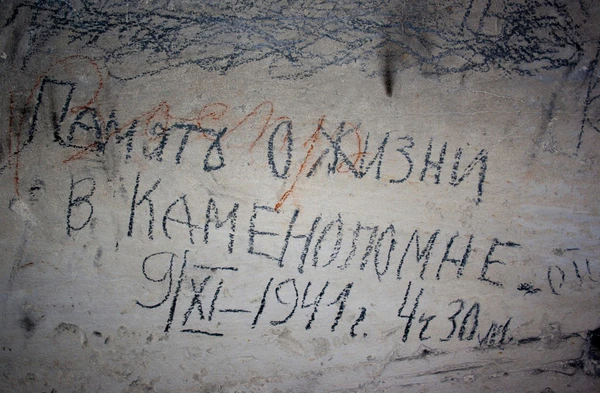 Память о жизни
в каменоломне.
9/XI-1941г. 4ч 30м